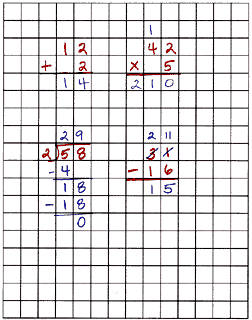 12
+ 2
14
1
42
x 5
210
29
2)58
-4
18
-18
0
2 11
31
-16
15